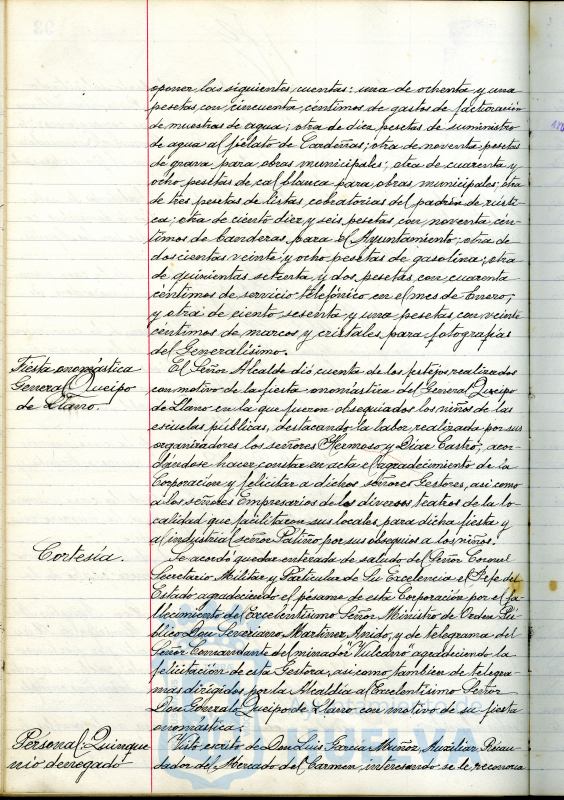 oponer las siguientes cuentas: una de ochenta y una
pesetas con cincuenta céntimos de gastos de facturación
de muestras de agua; otra de diez pesetas de suministro
de agua al fielato de Cardeñas; otra de noventa pesetas
de grava para obras municipales; otra de cuarenta y
ocho pesetas de cal blanca para obras municipales; otra
de tres pesetas de listas cobratorias del padrón de rústi-
ca; otra de ciento diez y seis pesetas con noventa cén-
timos de banderas para el Ayuntamiento; otra de
doscientas veinte y ocho pesetas de gasolina; otra
de quinientas setenta y dos pesetas con cuarenta
céntimos de servicio telefónico en el mes de Enero;
y otra de ciento sesenta y una pesetas con veinte
centimos de marcos y cristales para fotografías
del Generalísimo.
Fiesta onomástica
General Queipo
de Llano.
El Señor Alcalde dió cuenta de los festejos realizados
con motivo de la fiesta onomástica del General Queipo
de Llano en la que fueron obsequiados los niños de las
escuelas públicas, destacando la labor realizada por sus
organizadores los señores Hermoso y Díaz Castro, acor-
dándose hacer constar en acta el agradecimiento de la
Corporación y felicitar a dichos señores Gestores, así como
a los señores Empresarios de los diversos teatros de la lo-
calidad que facilitaron sus locales para dicha fiesta y
al industrial señor Patiño por sus obsequios a los niños.
Cortesía.
Se acordó quedar enterada de saludo del Señor Coronel
Secretario Militar y Particular de Su Excelencia el Jefe del
Estado agradeciendo el pésame de esta Corporación por el fa-
llecimiento del Excelentísimo Señor Ministro de Orden Pú-
blico Don Severiano Martínez Anido, y de telegrama del
Señor Comandante del minador "Vulcano" agradeciendo la
felicitación de esta Gestora, así como tambien de telegra-
mas dirigidos por la Alcaldía al Excelentísimo Señor
Don Gonzalo Queipo de Llano con motivo de su fiesta
onomástica.
Personal: Quinque
nio denegado
Visto escrito de Don Luis García Muñoz, Auxiliar Recau-
dador del Mercado del Carmen, interesando se le reconozca
HUELVA